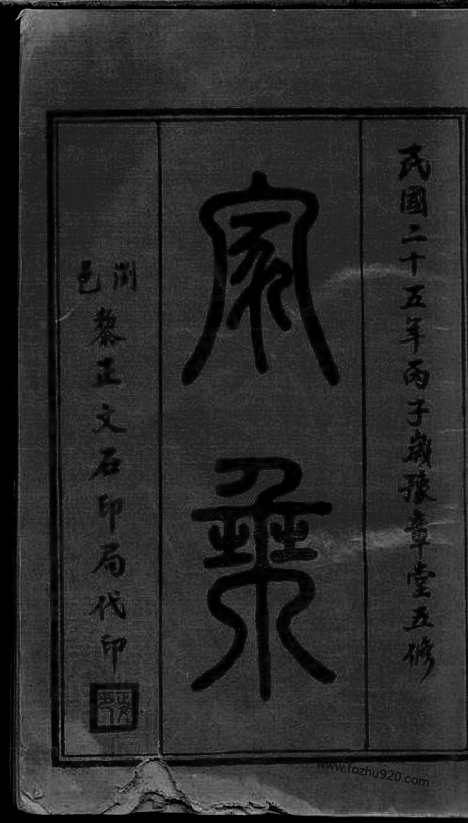 民國二十五年丙子歲豫章堂五修
家乘
瀏邑
黎正文石印局代印
www.fozhu920.com